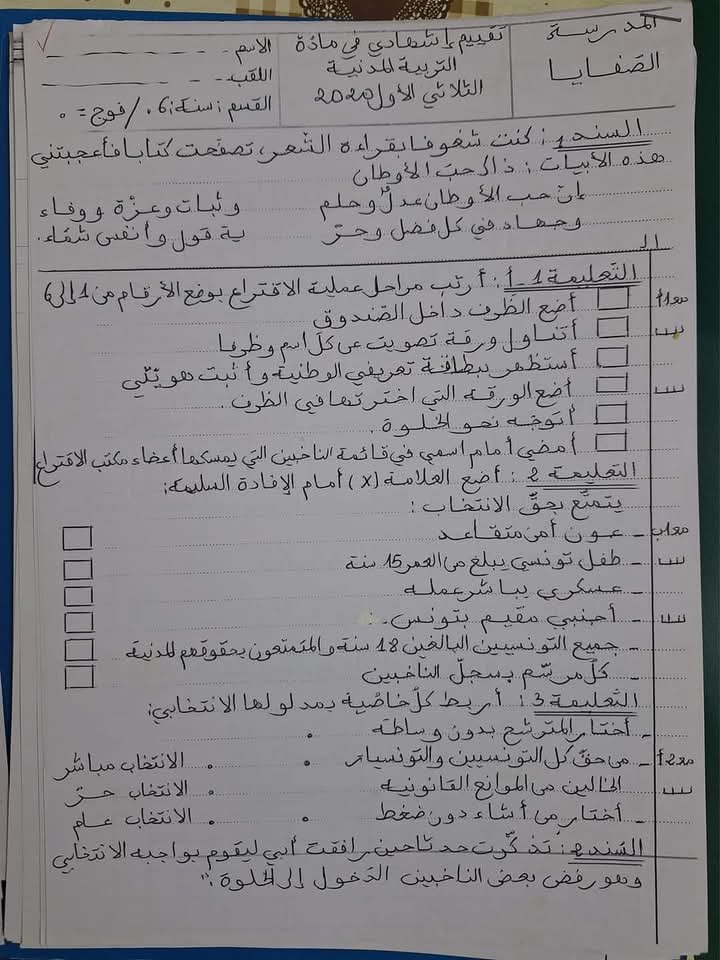 المدرسة
الصّفايا
تقييم إشهادي في مادّة
التربية المدنية
الثلاثي الأول 2020
الاسم
اللقب
القسم: سنة: 6 / فوج =
السند 1: كنت شغوفا بقراءة الشّعر، تصفّحت كتابا فأعجبتني
هذه الأبيات: ذاك حبّ الأوطان
إنّ حب الأوطان عدل وحلم وثبات وعزّة ووفاء
وجهاد في كل فضل وحرّ ية قول وأنفس شمّاء.
التعليمة 1 - أ: أرتب مراحل عملية الاقتراع بوضع الأرقام من 1 إلى 6
مع1أ
أضع الظّرف داخل الصّندوق
أتناول ورقة تصويت عن كل اسم وظرفا
أستظهر ببطاقة تعريفي الوطنية وأثبت هويّتي
أضع الورقة التي اخترتها في الظرف.
أتوجّه نحو الخلوة.
أمضي أمام اسمي في قائمة الناخبين التي يمسكها أعضاء مكتب الاقتراع
التعليمة 2: أضع العلامة (x) أمام الإفادة السليمة:
يتمتّع بحقّ الانتخاب:
مع1ب
- عون أمن متقاعد
- طفل تونسي يبلغ من العمر 15 سنة
- عسكري يباشر عمله
- أجنبي مقيم بتونس.
- جميع التونسيين البالغين 18 سنة والمتمتعون بحقوقهم المدنية
- كلّ مرسّم بسجلّ الناخبين
التّعليمة 3: أربط كلّ خاصّية بمدلولها الانتخابي:
- أختار المترشح بدون وساطة
مع2أ
- من حقّ كل التونسيين والتونسيات الانتخاب مباشر
الخالين من الموانع القانونية الانتخاب حرّ
- أختار من أشاء دون ضغط الانتخاب عام
السّند 2: تذكّرت حدثا حين رافقت أبي ليقوم بواجبه الانتخابي
وهو رفض بعض الناخبين الدّخول إلى الخلوة."